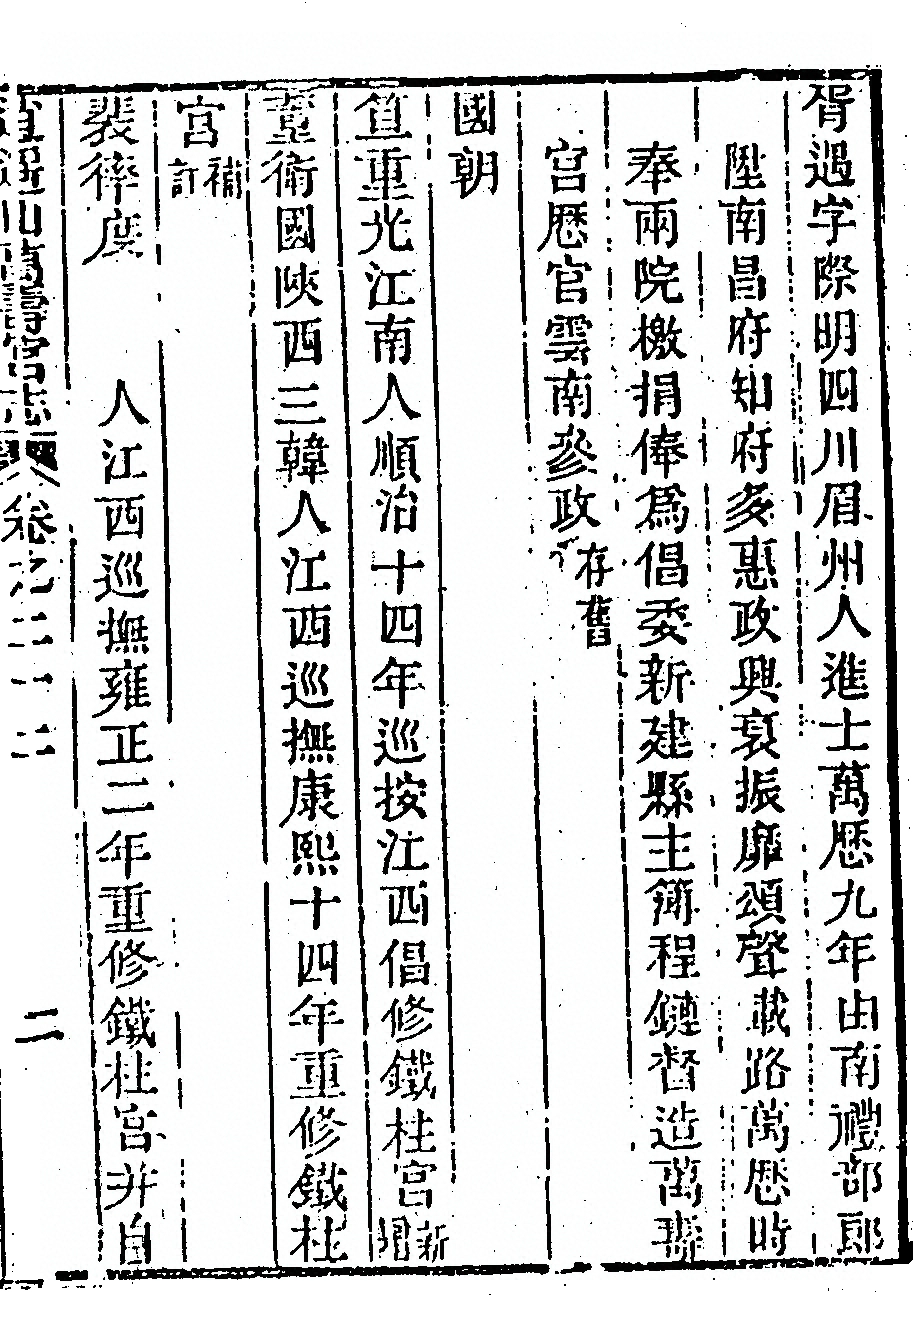 胥遇字際明四川眉州人進士萬歷九年由南禮部郎
陞南昌府知府多惠政興衰振靡頌聲載路萬歷時
奉兩院檄捐俸爲倡委新建縣主簿程鏈督造萬壽
宮歷官雲南參政存舊
國朝
笪重光江南人順治十四年巡按江西倡修鐵柱宮新增
董衛國陝西三韓人江西巡撫康熙十四年重修鐵柱
宮補訂
裴㣭度 人江西巡撫雍正二年重修鐵柱宮并自
逍遙山萬壽宮志 卷之二十二 二